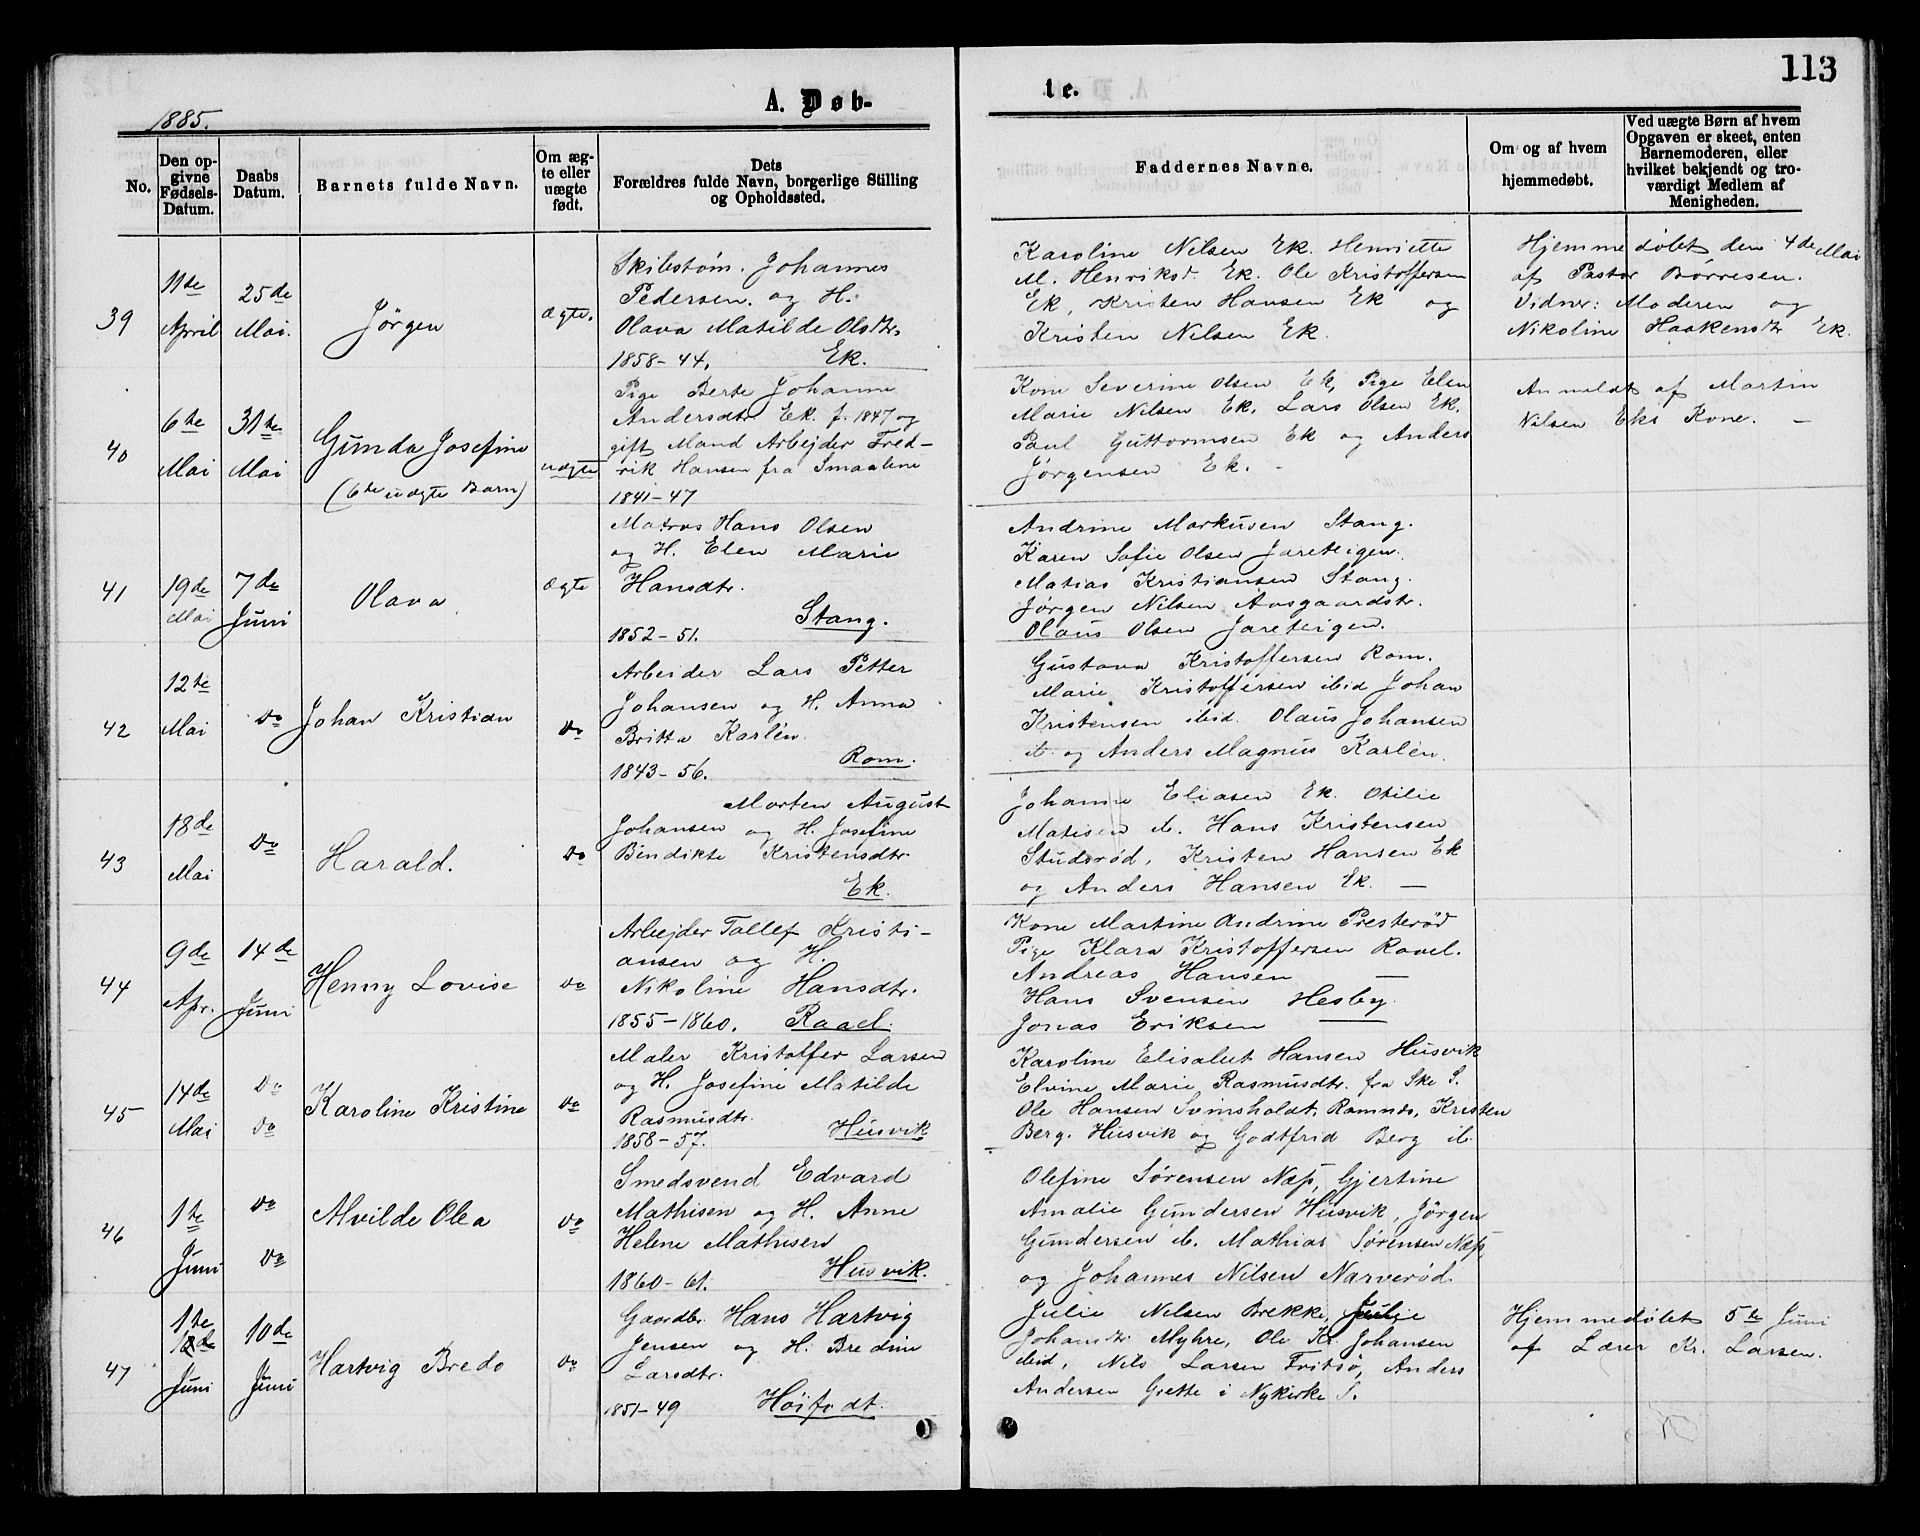 113
1885.
A. Døb-
te.
No.
Den op-
givne
Fødsels-
Datum.
Daabs
Datum.
Barnets fulde Navn.
Om æg-
te eller
uægte
født.
Dets
Forældres fulde Navn, borgerlige Stilling
og Opholdssted.
Faddernes Navne.
Om og af hvem
hjemmedøbt.
Ved uægte Børn af hvem
Opgaven er skeet, enten
Barnemoderen, eller
hvilket bekjendt og tro-
værdigt Medlem af
Menigheden.
39
11te
April
25de
Mai.
Jörgen
ægte.
Skibstöm. Johannes
Pedersen. og H.
Olava Matilde Olsdtr.
1858-44. Ek.
Karoline Nilsen Ek. Henriette
M. Henriksd. Ek. Ole Kristoffersen
Ek, Kristen Hansen Ek og
Kristen Nilsen Ek.
Hjemmedöbt den 4de Mai
af Pastor Börresen.
Vidner: Moderen og
Nikoline Haakensdtr Ek.
40
6te
Mai
31te
Mai
Gunda Josefine
(6te uægte Barn)
uægte
Pige Berte Johanne
Andersdtr Ek. f. 1847 og
gift Mand Arbejder Fred-
rik Hansen fra Smaalene
1841-47
Kone Severine Olsen Ek, Pige Elen
Marie Nilsen Ek. Lars Olsen Ek.
Paul Guttormsen Ek og Anders
Jörgensen Ek. -
Anmeldt af Martin
Nilsen Eks Kone. -
41
19de
Mai
7de
Juni
Olava
ægte
Matros Hans Olsen
og H. Elen Marie
Hansdtr.
Stang.
1852-51.
Andrine Markusen Stang.
Karen Sofie Olsen Jareteigen.
Matias Kristiansen Stang.
Jörgen Nilsen Aasgaardstr.
Olaus Olsen Jareteigen.
42
12te
Mai
do
Johan Kristian
do
Arbeider Lars Petter
Johansen og H. Anna
Britta Karlén.
Rom.
1843-56.
Gustava Kristoffersen Rom.
Marie Kristoffersen ibid Johan
Kristensen ibid. Olaus Johansen
ib. og Anders Magnus Karlén.
43
18de
Mai
do
Harald.
do
Morten August
Johansen og H. Josefine
Bendikte Kristensdtr.
Ek.
Johanne Eliasen Ek. Otilie
Matisen ib. Hans Kristensen
Studsröd, Kristen Hansen Ek
og Anders Hansen Ek. -
44
9de
Apr.
14de
Juni
Henny Lovise
do
Arbejder Tollef Kristi-
ansen og H.
Nikoline Hansdtr.
1855-1860. Raael.
Kone Martine Andrine Presteröd
Pige Klara Kristoffersen Raael.
Andreas Hansen -
Hans Svensen Hesby.
Jonas Eriksen -
45
14de
Mai
do
do
Karoline Kristine
do
Maler Kristoffer Larsen
og H. Josefine Matilde
Rasmusdtr.
1858-57. Husvik
Karoline Elisabet Hansen Husvik
Elvine Marie Rasmusdtr. fra Ske S.
Ole Hansen Svinsholdt, Ramnes, Kristen
Berg. Husvik og Godtfrid Berg ib.
46
1te
Juni
do
do
Alvilde Olea
do
Smedsvend Edvard
Mathisen og H. Anne
Helene Mathisen
1860-61. Husvik.
Olefine Sörensen Næs, Gjertine
Amalie Gundersen Husvik, Jörgen
Gundersen ib. Mathias Sörensen Næs,
og Johannes Nilsen Narveröd.
47
1te
Juni
10de
Juni
Hartvig Bredo
do
Gaardbr. Hans Hartvig
Jensen og H. Bredine
Larsdtr.
1851-49 Höifodt.
Julie Nilsen Brekke, Julie
Johansdtr Myhre, Ole Kr. Johansen
ibid, Nils Larsen Tvitsö, Anders
Andersen Grette i Nykirke S.
Hjemmedöbt 5te Juni
af Lærer Kr. Larsen.